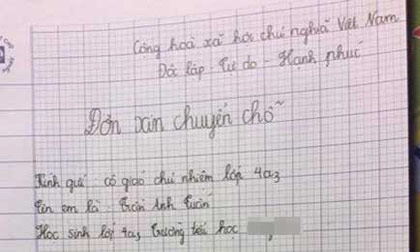 Cộng hoà xã hội chủ nghĩa Việt Nam
Độc lập - Tự do - Hạnh phúc
Đơn xin chuyển chỗ
Kính gửi cô giáo chủ nhiệm lớp 4a3
Tên em là : Trần Anh Tuấn
Học sinh lớp 4a3 trường tiểu học